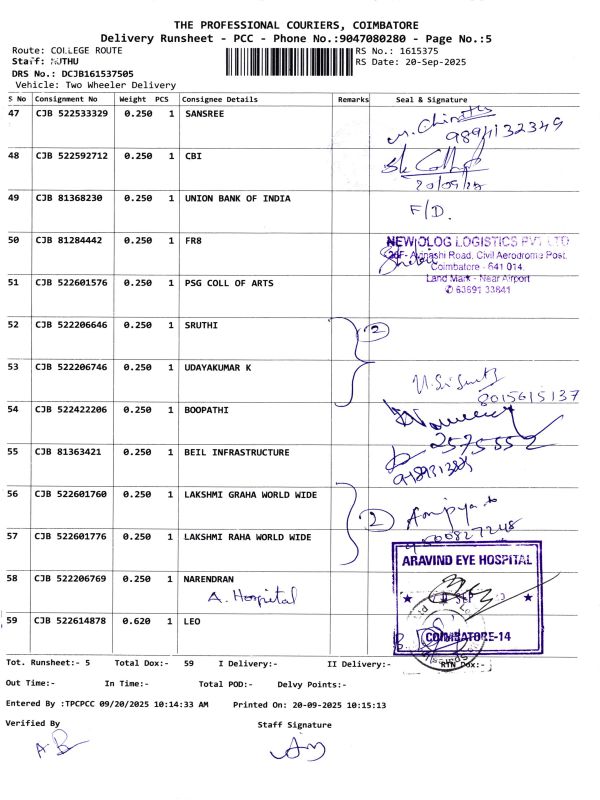 THE PROFESSIONAL COURIERS, COIMBATORE
Delivery Runsheet - PCC - Phone No.:9047080280 - Page No.:5
Route: COLLEGE ROUTE RS No.: 1615375
Staff: MUTHU RS Date: 20-Sep-2025
DRS No.: DCJB161537505
Vehicle: Two Wheeler Delivery
S No Consignment No Weight PCS Consignee Details Remarks Seal & Signature
47 CJB 522533329 0.250 1 SANSREE
48 CJB 522592712 0.250 1 CBI
20/09/25
49 CJB 81368230 0.250 1 UNION BANK OF INDIA F/D.
50 CJB 81284442 0.250 1 FR8
NEW OLOG LOGISTICS PVT LTD
Avinashi Road, Civil Aerodrome Post,
Coimbatore - 641 014.
Land Mark - Near Airport
✆ 63691 33841
51 CJB 522601576 0.250 1 PSG COLL OF ARTS
52 CJB 522206646 0.250 1 SRUTHI 2
53 CJB 522206746 0.250 1 UDAYAKUMAR K
8015615137
54 CJB 522422206 0.250 1 BOOPATHI
2575552
55 CJB 81363421 0.250 1 BEIL INFRASTRUCTURE
56 CJB 522601760 0.250 1 LAKSHMI GRAHA WORLD WIDE 2
57 CJB 522601776 0.250 1 LAKSHMI RAHA WORLD WIDE
ARAVIND EYE HOSPITAL
58 CJB 522206769 0.250 1 NARENDRAN
A. Hospital
★ SEP ★
59 CJB 522614878 0.620 1 LEO
COIMBATORE-14
Tot. Runsheet:- 5 Total Dox:- 59 I Delivery:- II Delivery:- RTN Dox:-
Out Time:- In Time:- Total POD:- Delvy Points:-
Entered By :TPCPCC 09/20/2025 10:14:33 AM Printed On: 20-09-2025 10:15:13
Verified By Staff Signature